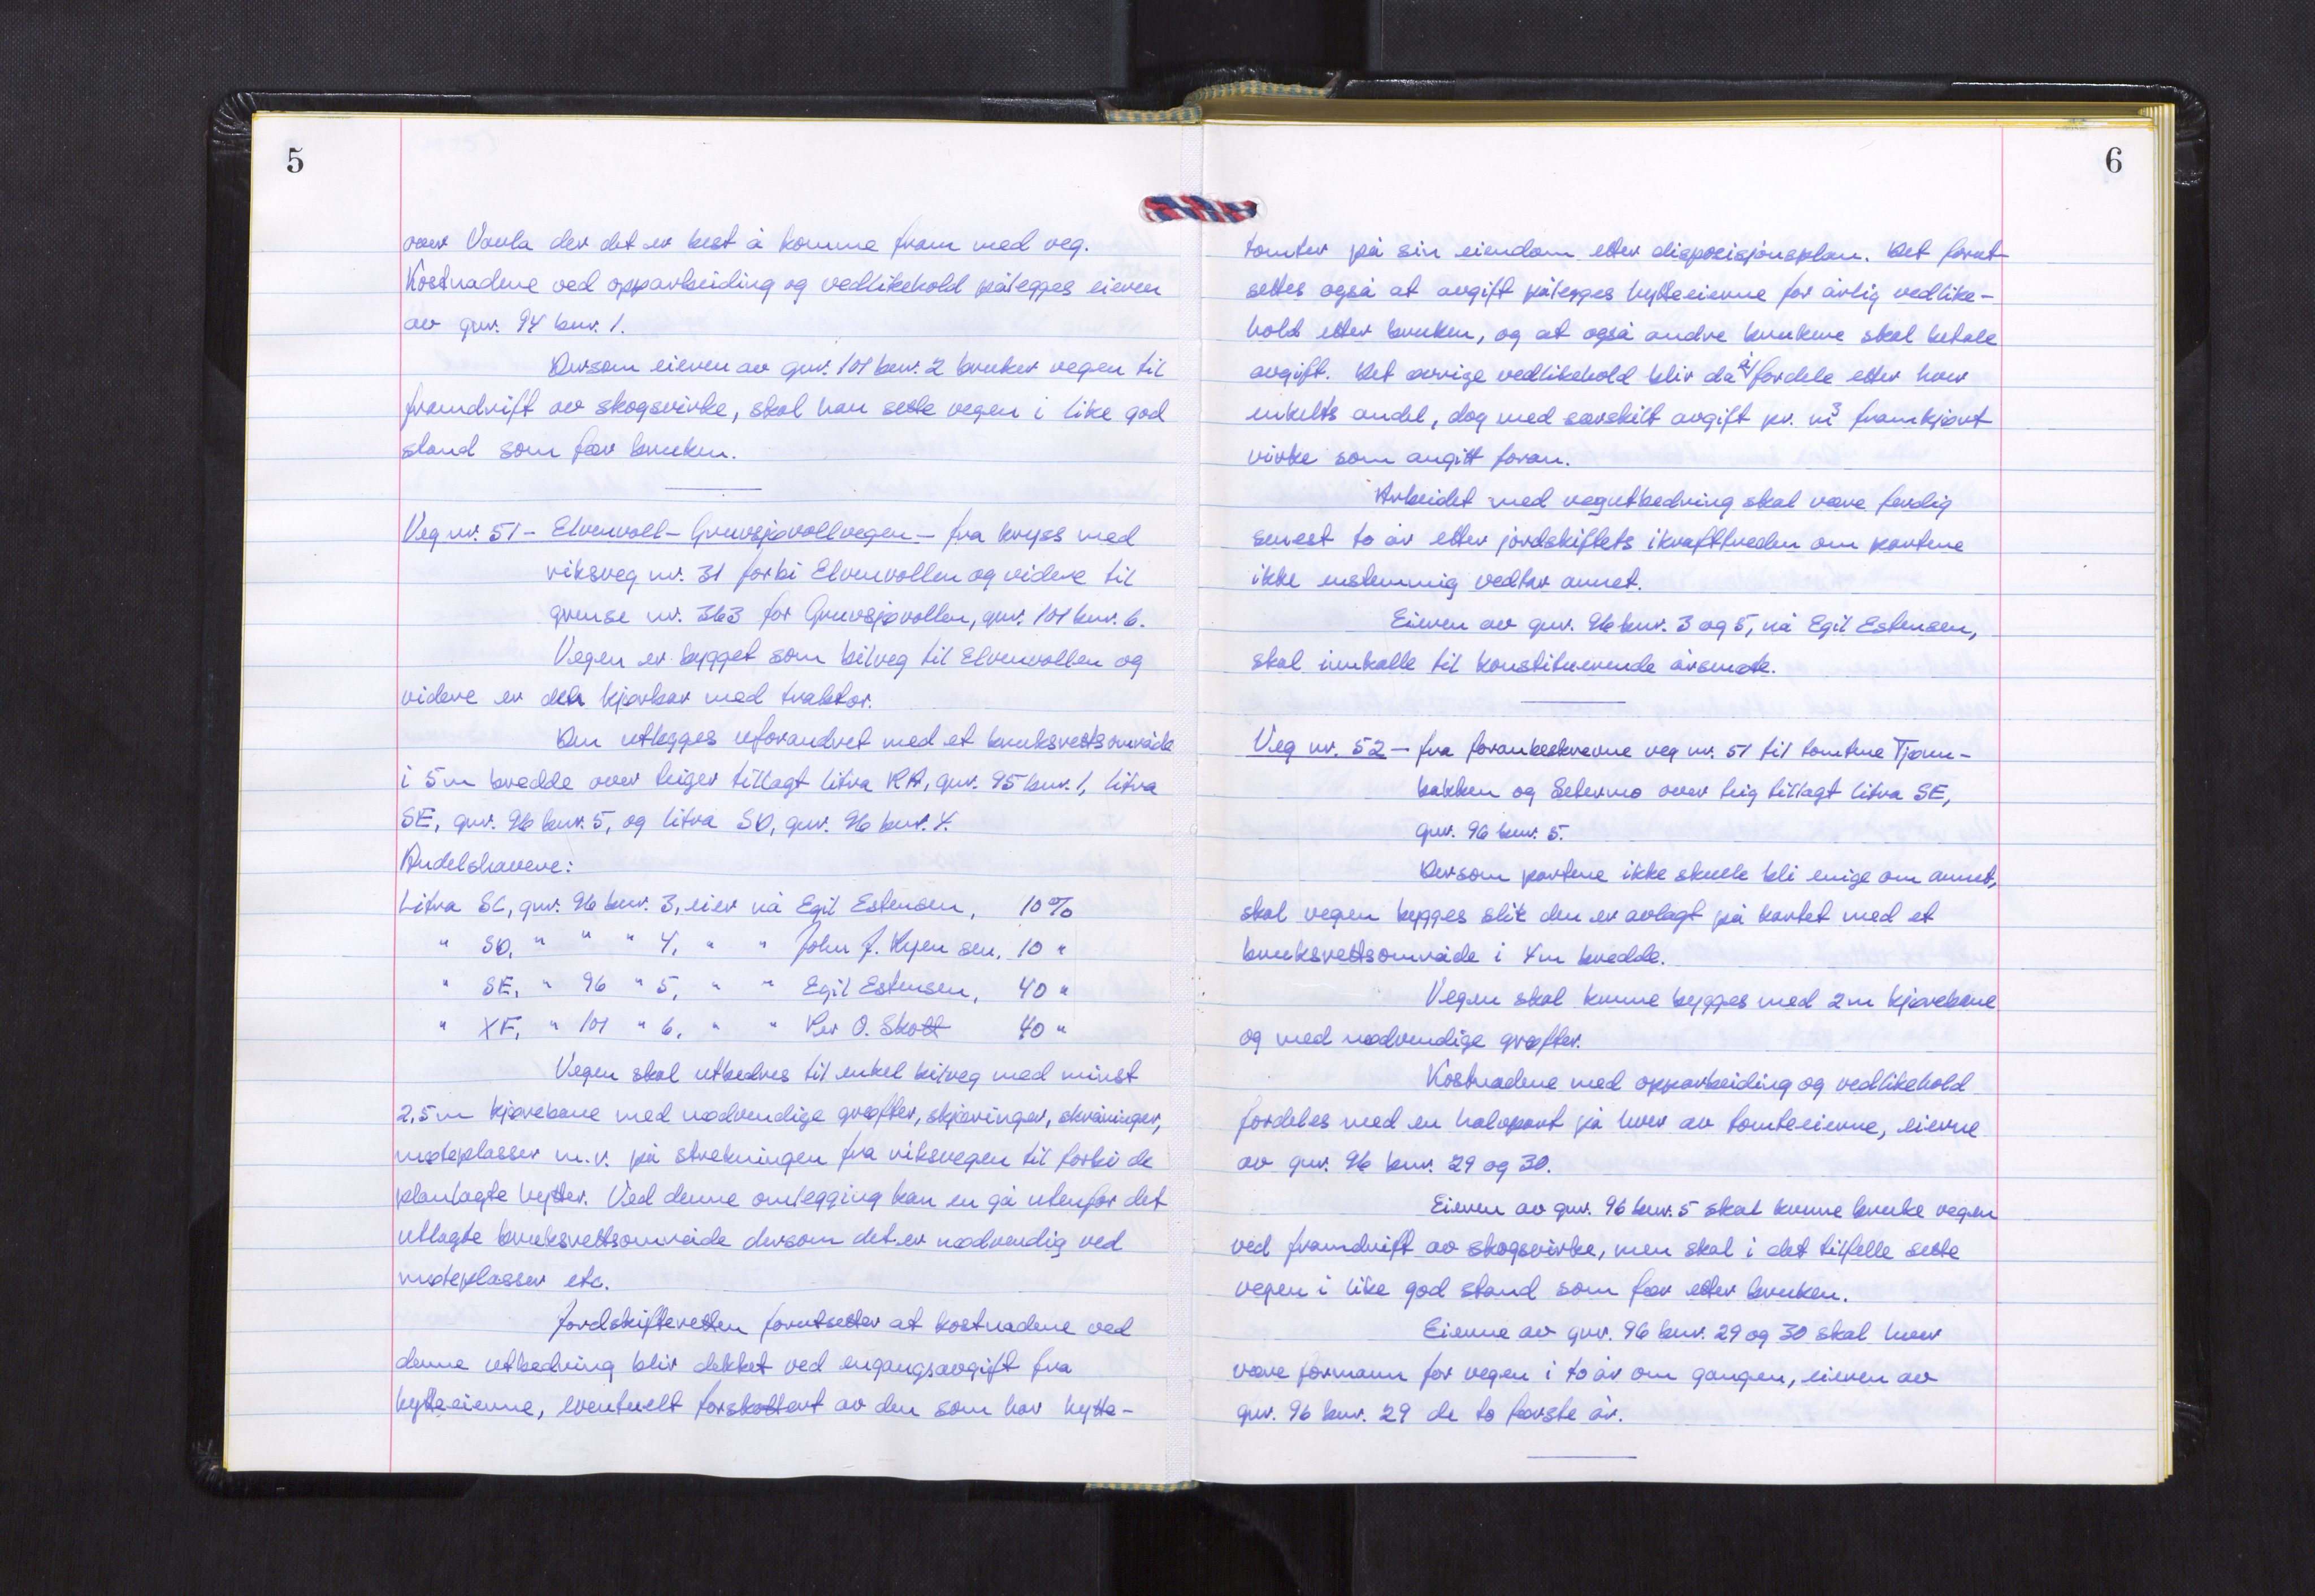 5
over Vaula der det er best å komme fram med veg.
Kostnadene ved opparbeiding og vedlikehold pålegges eieren
av gnr. 94 bnr. 1.
Dersom eieren av gnr. 101 bnr. 2 bruker vegen til
framdrift av skogsvirke, skal han sette vegen i like god
stand som før bruken.
Veg nr. 51 - Elvenvoll - Gruvsjøvollvegen - fra kryss med
riksveg nr. 31 forbi Elvenvollen og videre til
grense nr. 363 for Gruvsjøvollen, gnr. 101 bnr. 6.
Vegen er bygget som bilveg til Elvenvollen og
videre er den kjørbar med traktor.
Den utlegges uforandret med et bruksrettsområde
i 5 m bredde over teiger tillagt litra RA, gnr. 95 bnr. 1, litra
SE, gnr. 96 bnr. 5, og litra SD, gnr. 96 bnr. 4.
Andelshavere:
Litra SC, gnr. 96 bnr. 3, eier nå Egil Estensen, 10 %
" SD, " " " 4, " " John J. Ryen sen. 10 "
" SE, " 96 " 5, " " Egil Estensen, 40 "
" XF, " 101 " 6, " " Per O. Skott 40 "
Vegen skal utbedres til enkel bilveg med minst
2,5 m kjørebane med nødvendige grøfter, skjæringer, skråninger,
møteplasser m.v. på strekningen fra riksvegen til forbi de
planlagte hytter. Ved denne omlegging kan en gå utenfor det
utlagte bruksrettsområde dersom det er nødvendig ved
møteplasser etc.
Jordskifteretten forutsetter at kostnadene ved
denne utbedring blir dekket ved engangsavgift fra
hytteeierne, eventuelt forskottert av den som har hytte-
6
tomter på sin eiendom etter disposisjonsplan. Det forut-
settes også at avgift pålegges hytteeierne for årlig vedlike-
hold etter bruken, og at også andre brukere skal betale
avgift. Det øvrige vedlikehold blir da å fordele etter hver
enkelts andel, dog med særskilt avgift pr. m³ framkjørt
virke som angitt foran.
Arbeidet med vegutbedring skal være ferdig
senest to år etter jordskiftets ikrafttreden om partene
ikke enstemmig vedtar annet.
Eieren av gnr. 96 bnr. 3 og 5, nå Egil Estensen,
skal innkalle til konstituerende årsmøte.
Veg nr. 52 - fra foranbeskrevne veg nr. 51 til tomtene Tjønn-
bakken og Setermo over teig tillagt litra SE,
gnr. 96 bnr. 5.
Dersom partene ikke skulle bli enige om annet,
skal vegen bygges slik den er avlagt på kartet med et
bruksrettsområde i 4 m bredde.
Vegen skal kunne bygges med 2 m kjørebane
og med nødvendige grøfter.
Kostnadene med opparbeiding og vedlikehold
fordeles med en halvpart på hver av tomteeierne, eierne
av gnr. 96 bnr. 29 og 30.
Eieren av gnr. 96 bnr. 5 skal kunne bruke vegen
ved framdrift av skogsvirke, men skal i det tilfelle sette
vegen i like god stand som før etter bruken.
Eierne av gnr. 96 bnr. 29 og 30 skal hver
være formann for vegen i to år om gangen, eieren av
gnr. 96 bnr. 29 de to første år.